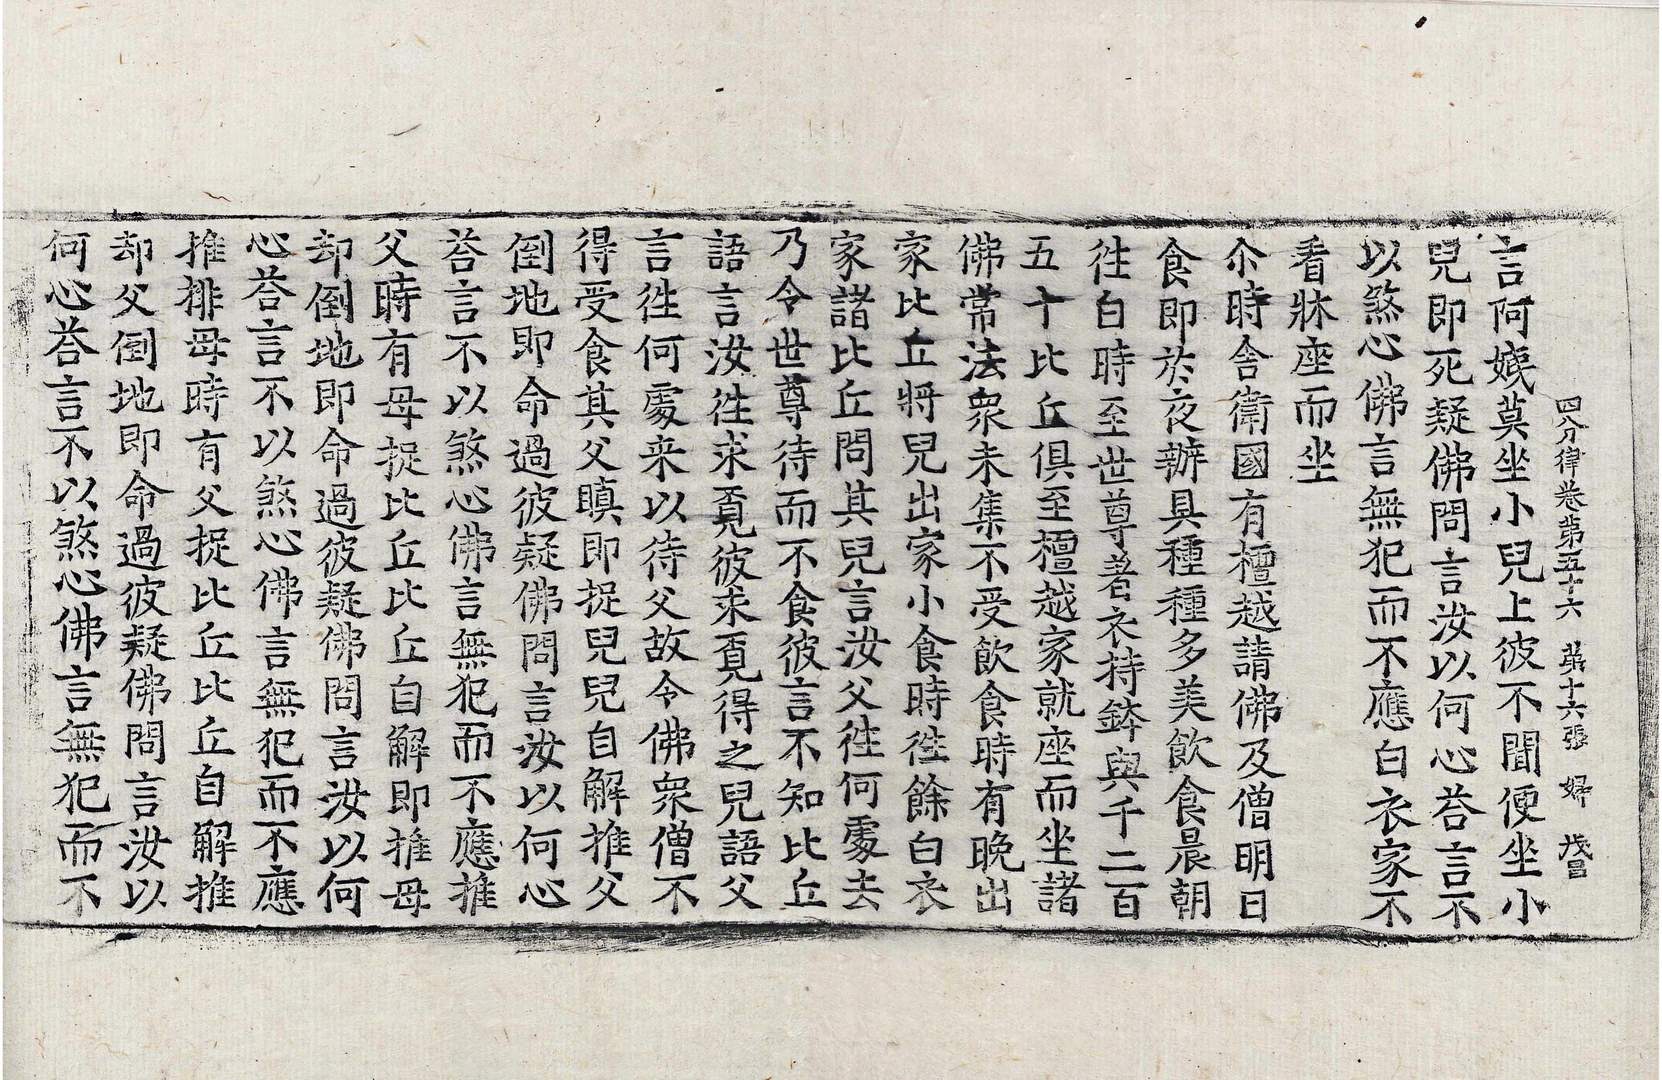 四分律卷第五十六 第十六張 婦 戊昌
言阿姨莫坐小兒上彼不聞便坐小
兒即死疑佛問言汝以何心荅言不
以煞心佛言無犯而不應白衣家不
看牀座而坐
尒時舍衛國有檀越請佛及僧明日
食即於夜辦具種種多美飲食晨朝
徃白時至世尊著衣持鉢與千二百
五十比丘俱至檀越家就座而坐諸
佛常法衆未集不受飲食時有晚出
家比丘將兒出家小食時徃餘白衣
家諸比丘問其兒言汝父徃何處去
乃令世尊待而不食彼言不知比丘
語言汝徃求覔彼求覔得之兒語父
言徃何處来以待父故令佛衆僧不
得受食其父瞋即捉兒兒自解推父
倒地即命過彼疑佛問言汝以何心
荅言不以煞心佛言無犯而不應推
父時有母捉比丘比丘自解即推母
却倒地即命過彼疑佛問言汝以何
心荅言不以煞心佛言無犯而不應
推排母時有父捉比丘比丘自解推
却父倒地即命過彼疑佛問言汝以
何心荅言不以煞心佛言無犯而不